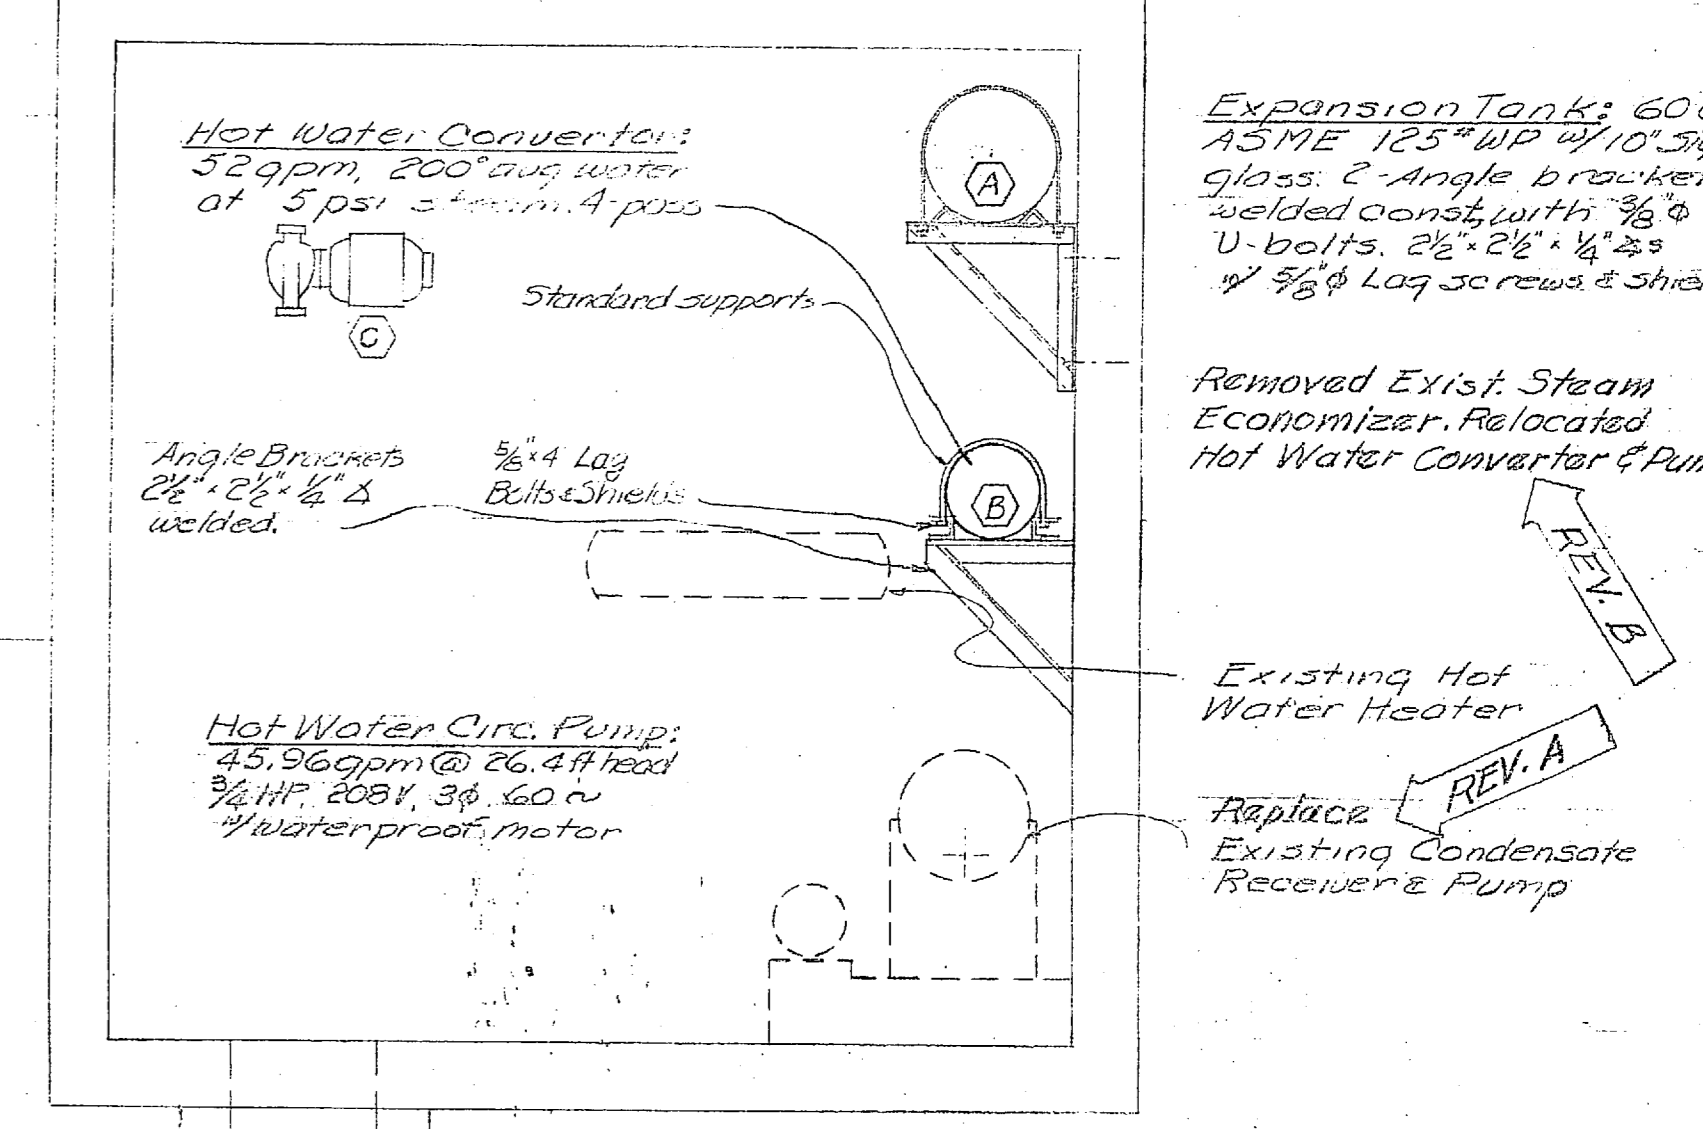 Hot Water Convertor:
52gpm, 200° avg water
at 5 psi steam. 4-pass
C
Standard supports
Angle Brackets
2½"×2½"×¼" ∡
welded.
⅝"×4 Lag
Bolts & Shields
A
B
Hot Water Circ. Pump:
45.96gpm @ 26.4 ft head
¾ HP, 208V, 3ϕ, 60 ~
w/ waterproof motor
Expansion Tank: 60
ASME 125# WP w/10"
glass. 2-Angle
welded const, with ⅜"ϕ
U-bolts. 2½"×2½"×¼" ∡s
w/ ⅝"ϕ Lag screws &
Removed Exist. Steam
Economizer. Relocated
Hot Water Converter &
REV. B
Existing Hot
Water Heater
REV. A
Replace
Existing Condensate
Receiver & Pump